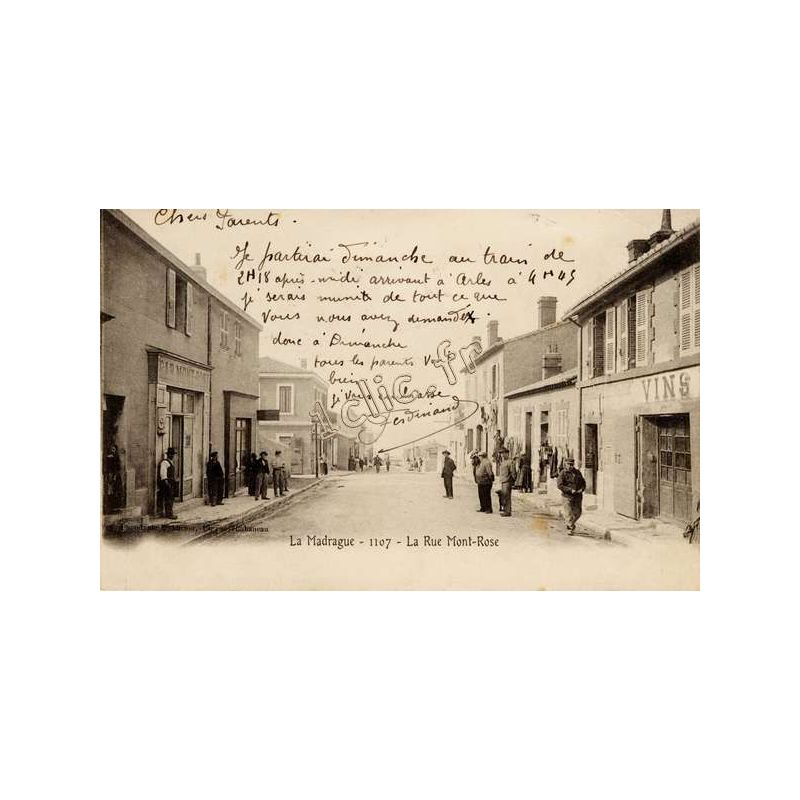 Chers Parents.
Je partirai Dimanche au train de
2H18 après-midi arrivant à Arles à 4H45
je serais munits de tout ce que
Vous nous avez demandez
donc à Dimanche
tous les parents Vont
bien
je Vous embrasse
Ferdinand
BAR MONT-ROSE
VINS
1clic.fr
La Madrague - 1107 - La Rue Mont-Rose